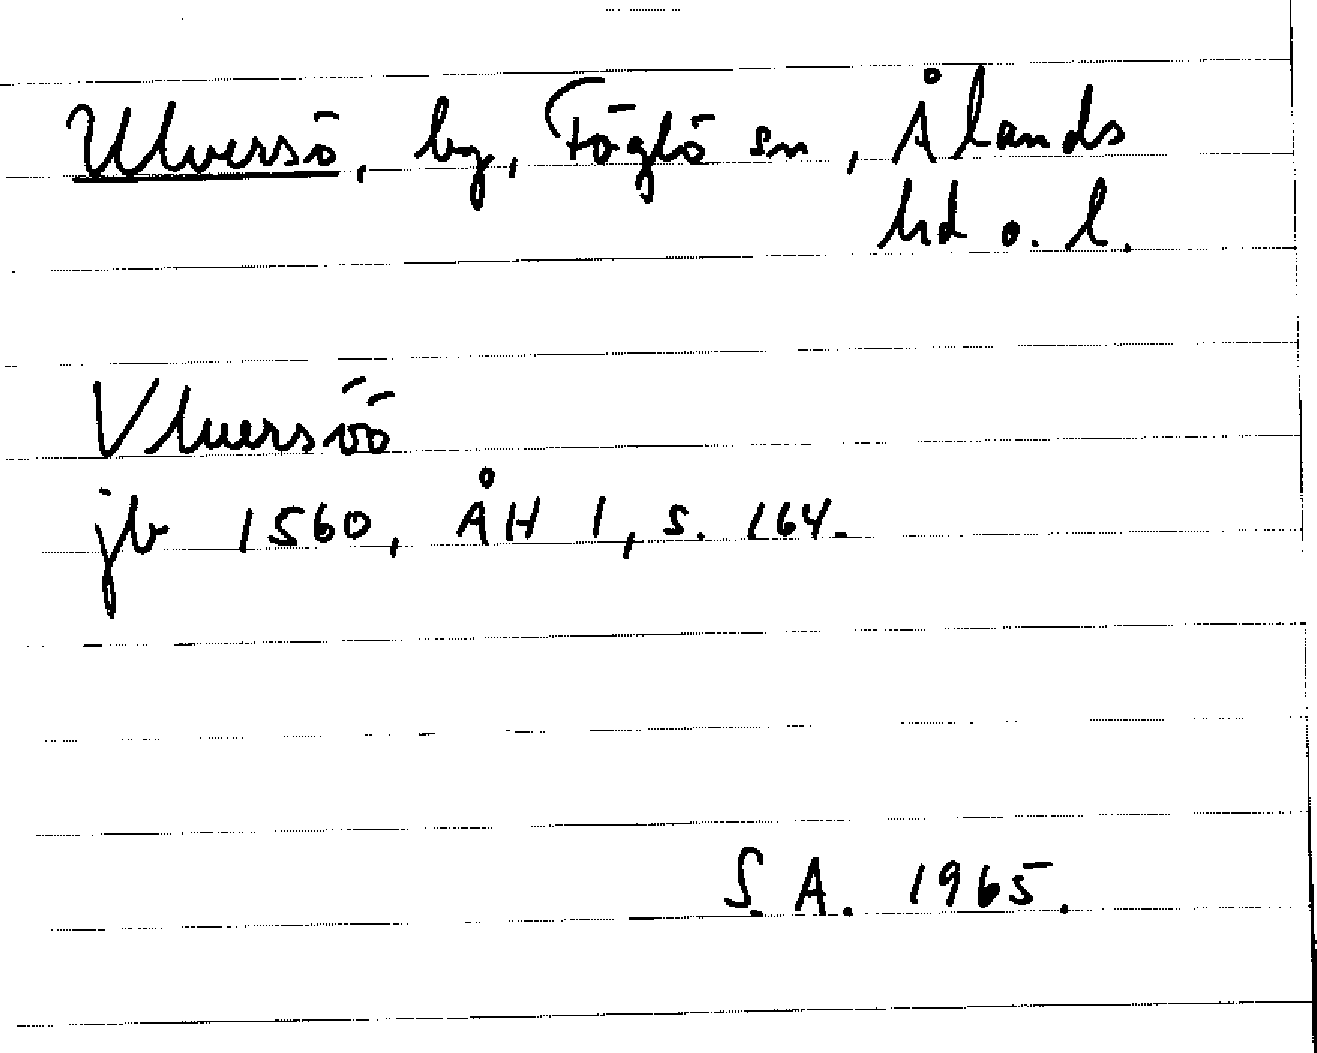 Ulversö, by, Föglö sn, Ålands
hd o. l.
Vluersöö
jb 1560, ÅH 1, s. 164.
S.A. 1965.